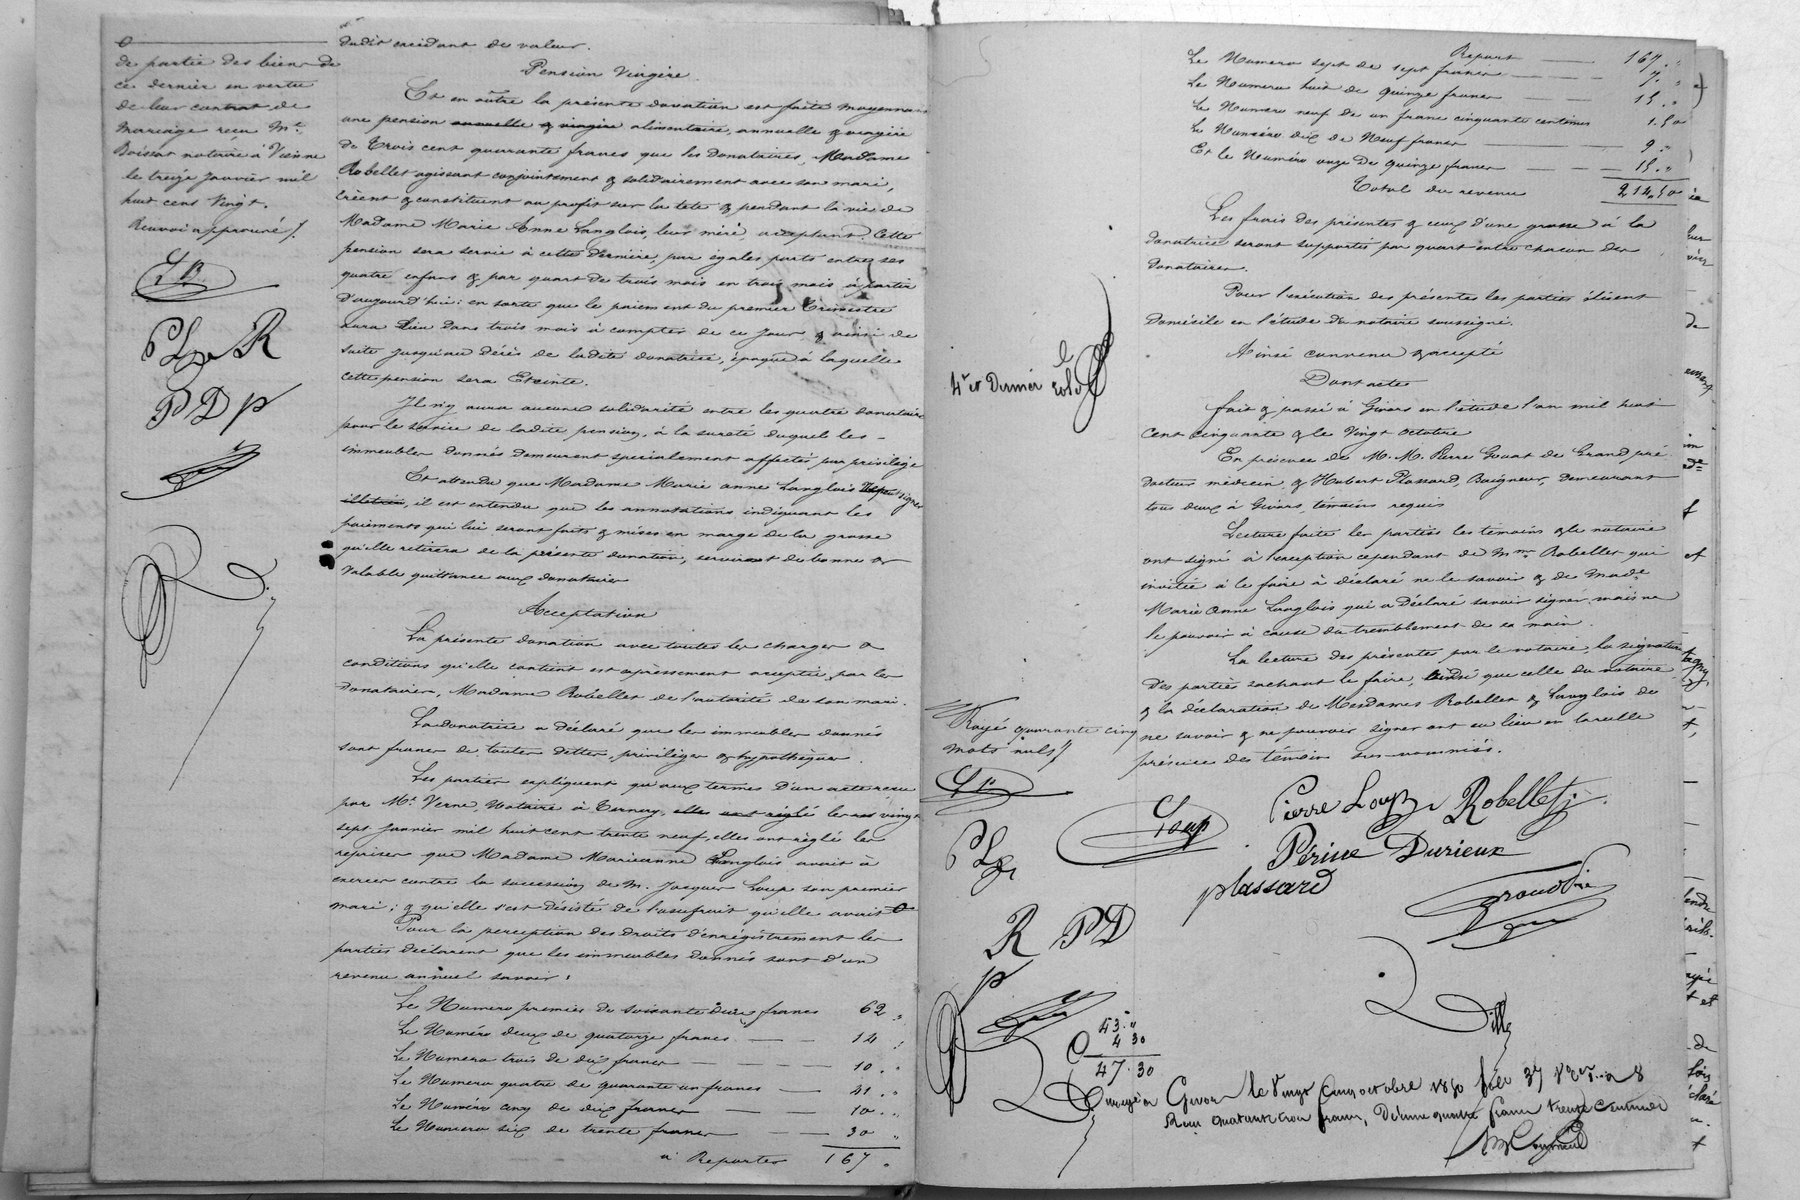 de partie des biens de
ce dernier en vertu
de leur contrat de
mariage reçu Me
Boissat notaire à Vienne
le treize janvier mil
huit cent vingt.
Renvoi approuvé /.
PL R
P D P
dudit excédant de valeur.
Pension Viagère.
Et en outre la présente donation est faite moyennant
une pension annuelle & viagère alimentaire, annuelle & viagère
de Trois cent quarante francs que les donataires, Madame
Robellet agissant conjointement & solidairement avec son mari,
Créent & constituent au profit sur la tete & pendant la vie de
Madame Marie Anne Langlois, leur mère acceptant. Cette
pension sera servie à cette dernière, par égales parts entre ses
quatre enfans & par quart de trois mois en trois mois à partir
d'aujourd'hui : en sorte que le paiement du premier trimestre
aura lieu dans trois mois à compter de ce jour, & ainsi de
suite jusqu'au décès de ladite donatrice, époque à laquelle
cette pension sera Eteinte.
Il n'y aura aucune solidarité entre les quatre donataires
pour le service de ladite pension, à la sureté duquel les
immeubles donnés demeurent specialement affectés par privilége
Et attendu que Madame Marie anne Langlois ne peut signer
illetrée, il est entendu que les annotations indiquant les
paiements qui lui seront faits & mises en marge de la grosse
qu'elle retirera de la présente donation, serviront de bonne &
valable quittance aux donataires
Acceptation
La présente donation avec toutes les charges &
conditions qu'elle contient est expressement acceptée par les
donataires, Madame Robellet de l'autorité de son mari.
La donatrice a déclaré que les immeubles donnés
sont francs de toutes dettes, priviléges & hypothèques.
Les parties expliquent qu'aux termes d'un acte reçu
par Me Verne, Notaire à Ternay, elles ont réglé les vingt
sept janvier mil huit cent trente neuf, elles ont réglé les
reprises que Madame Marianne Langlois avait à
exercer contre la succession de M. Jacques Loup son premier
mari ; & qu'elle s'est désisté de l'usufruit qu'elle avait
Pour la perception des droits d'enrégistrement les
parties declarent que les immeubles donnés sont d'un
revenu annuel savoir :
Le Numero premier de soixante deux francs 62 "
Le Numéro deux de quatorze francs 14 "
Le Numero trois de dix francs 10 "
Le Numero quatre de quarante un francs 41 "
Le Numéro cinq de dix francs 10 "
Le Numero six de trente francs 30 "
à Reporter 167 "
Report 167 "
Le Numero sept de sept francs 7 "
Le Numero huit de quinze francs 15 "
Le Numero neuf de un franc cinquante centimes 1.50
Le Numéro dix de Neuf francs 9 "
Et le Numéro onze de quinze francs 15 "
Total du revenu 214.50
Les frais des présentes & ceux d'une grosse à la
donatrice seront supportés par quart entre chacun des
donataires.
Pour l'exécution des présentes les parties élisent
domicile en l'étude du notaire soussigné.
Ainsi convenu & accepté
Dont acte
fait & passé à Givors en l'étude l'an mil huit
cent cinquante & le vingt octobre
En présence de M. M. Pierre Govat de Grand pré
docteur médecin, & Hubert Plassard, Baigneur, demeurant
tous deux à Givors, témoins requis
Lecture faite les parties les témoins & le notaire
ont signé à l'exception cependant de Mme Robellet qui
invitée à le faire à déclaré ne le savoir & de Made
Marie Anne Langlois qui a déclaré savoir signer mais ne
le pouvoir à cause du tremblement de sa main.
La lecture des présentes par le notaire, la signature
des parties sachant le faire, ainsi que celle du notaire
& la déclaration de Mesdames Robellet & Langlois de
ne savoir & ne pouvoir signer ont eu lieu en la réelle
présence des témoins sus-nommés.
4e et Dernier rôle
Rayé quarante cinq
mots nuls /
PL
R PD
P
Loup Pierre Loup Robellet j.
Périne Durieux
plassard
43 "
4 30
47.30
Enregé à Givors le vingt cinq octobre 1850 folio 37
Reçu quarante trois francs, Décime quatre francs trente centimes